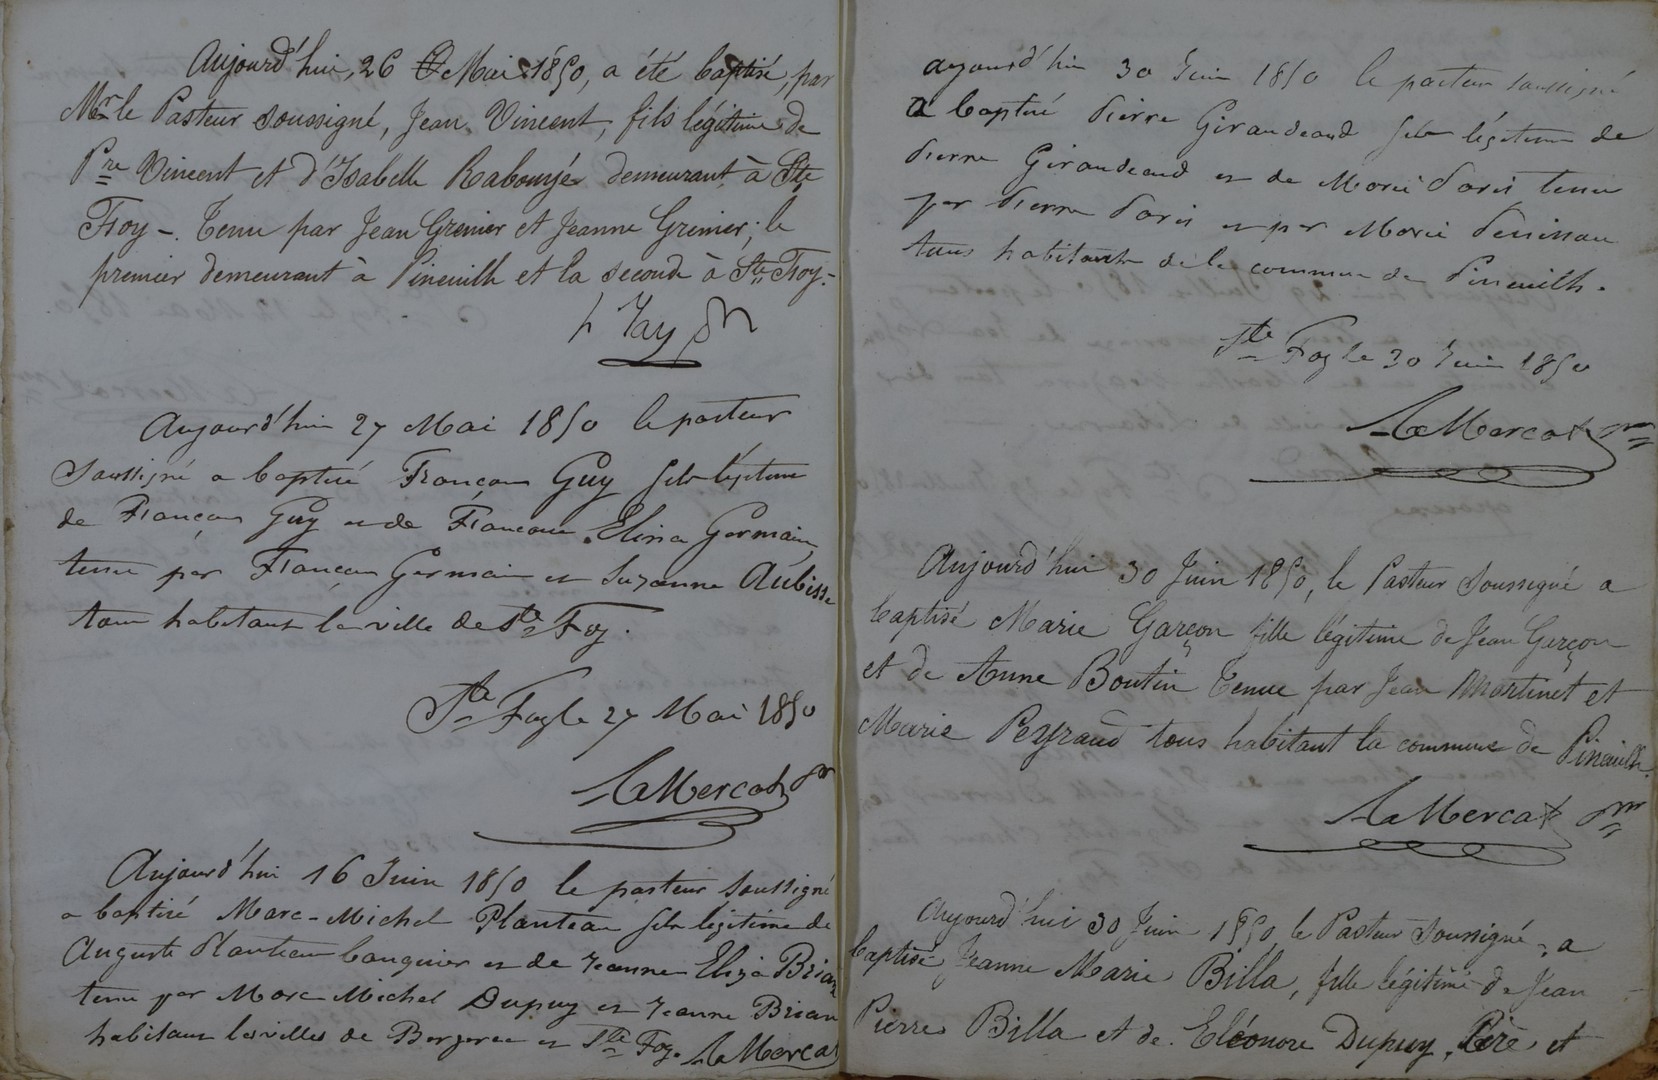 Aujourd'hui, 26 Mai 1850, a été baptisé, par
Mr le Pasteur soussigné, Jean Vincent, fils légitime de
Pre Vincent et d'Isabelle Rabouyé demeurant à Ste
Foy -. Tenu par Jean Grenier et Jeanne Grenier; le
premier demeurant à Pineuilh et la seconde à Ste Foy -
Aujourd'hui 27 Mai 1850 le pasteur
soussigné a baptisé François Guy fils légitime
de François Guy et de Françoise Elina Germain,
tenu par François Germain et Suzanne Aubisse
tous habitant la ville de Ste Foy.
Ste Foy le 27 Mai 1850
LaMercat pr
Aujourd'hui 16 Juin 1850 le pasteur soussigné
a baptisé Marc-Michel Planteau fils légitime de
Auguste Planteau banquier et de Jeanne Eliza Brian
tenu par Marc Michel Dupuy et Jeanne Brian
habitant les villes de Bergerac et Ste Foy. LaMercat
aujourd'hui 30 Juin 1850 le pasteur soussigné
a baptisé Pierre Giraudeaud fils légitime de
Pierre Giraudeaud et de Marie Paris tenu
par Pierre Paris et par Marie
tous habitants de la commune de Pineuilh.
Ste Foy le 30 Juin 1850
LaMercat pr
Aujourd'hui 30 Juin 1850, le Pasteur soussigné a
baptisé Marie Garçon fille légitime de Jean Garçon
et de Anne Boutin Tenue par Jean Martinet et
Marie Peyraud tous habitant la commune de Pineuilh.
LaMercat pr
Aujourd'hui 30 Juin 1850 le Pasteur soussigné, a
baptisé Jeanne Marie Billa, fille légitime de Jean
Pierre Billa et de Eléonore Dupuy, Père et